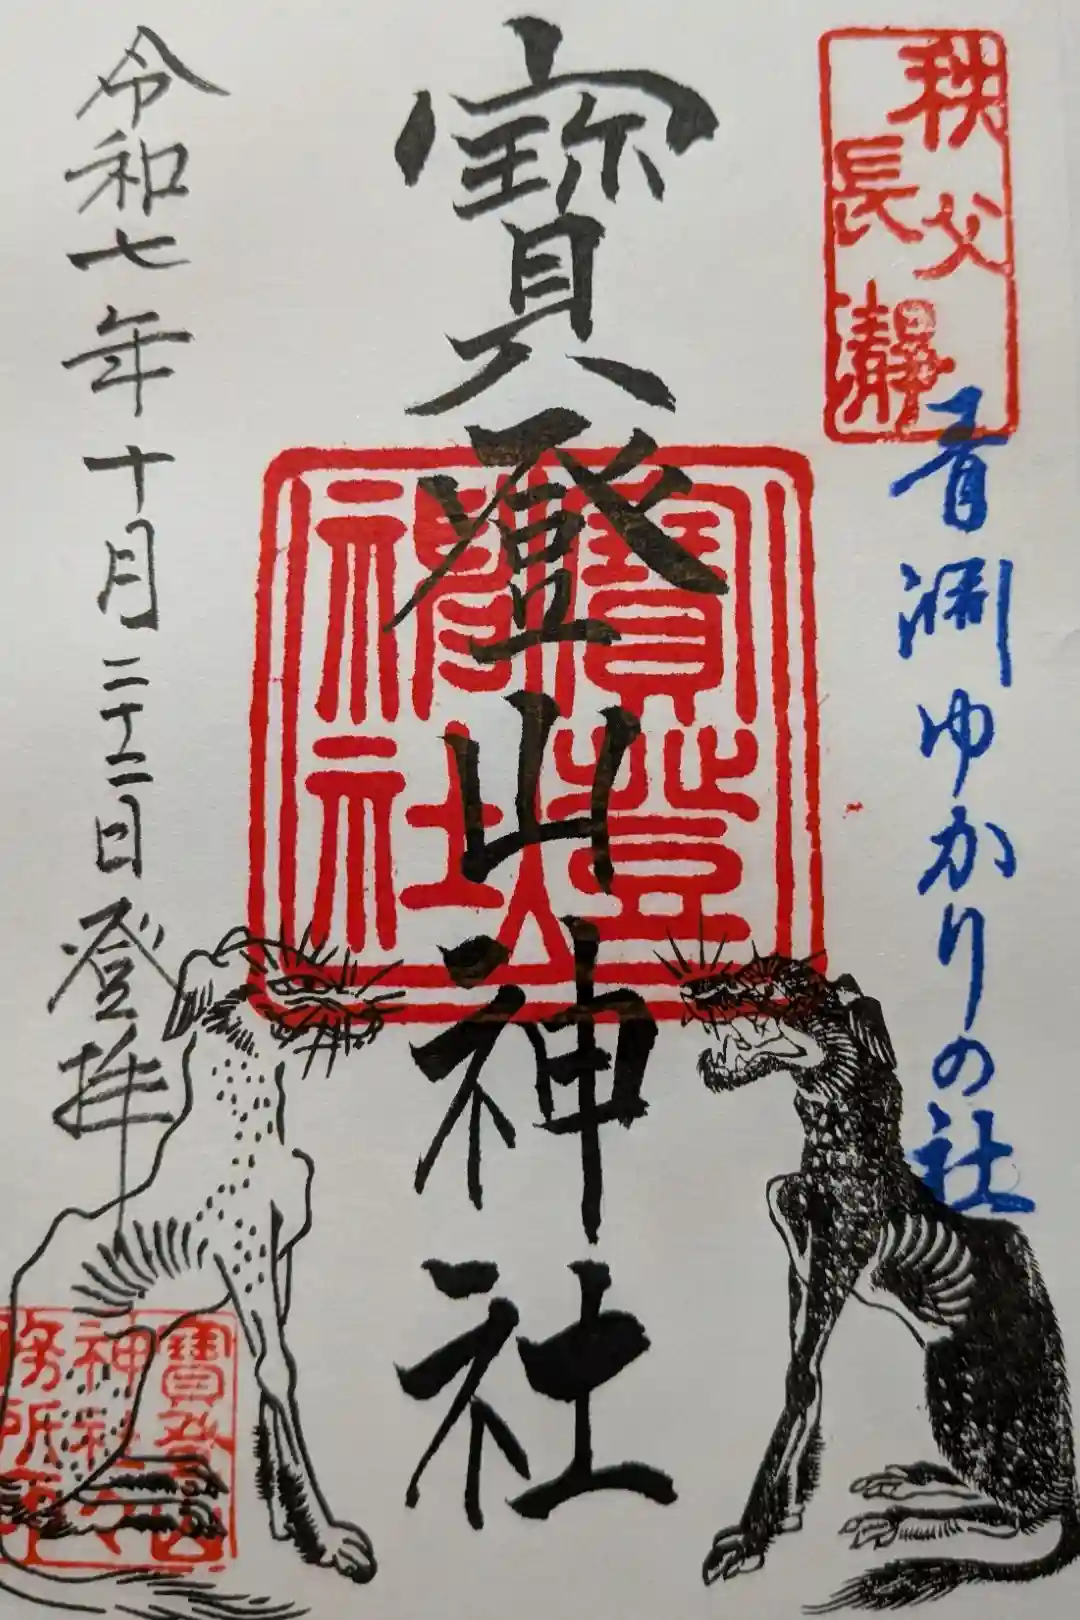 秩父
長瀞
青淵ゆかりの社
寶登山神社
寶登山
神社
令和七年十月二十二日登拝
寶登山
神社
務所印